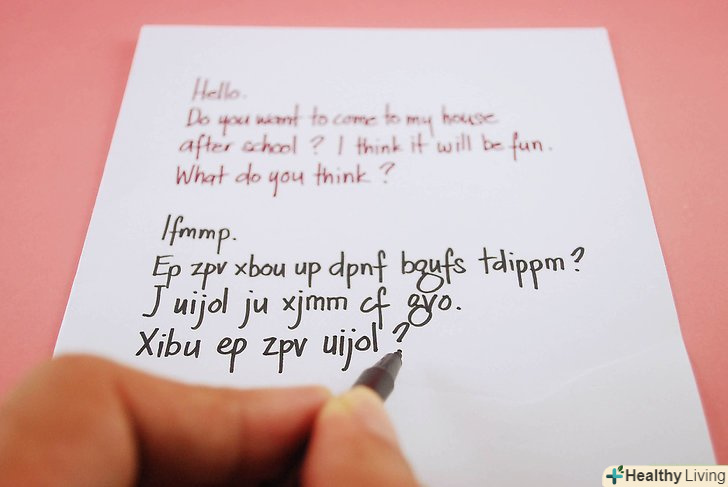 Hello.
Do you want to come to my house
after school ? I think it will be fun.
What do you think ?
Ifmmp.
Ep zpv xbou up dpnf bgufs tdippm?
J uijol ju xjmm cf gvo.
Xibu ep zpv uijol ?
Healthy Living